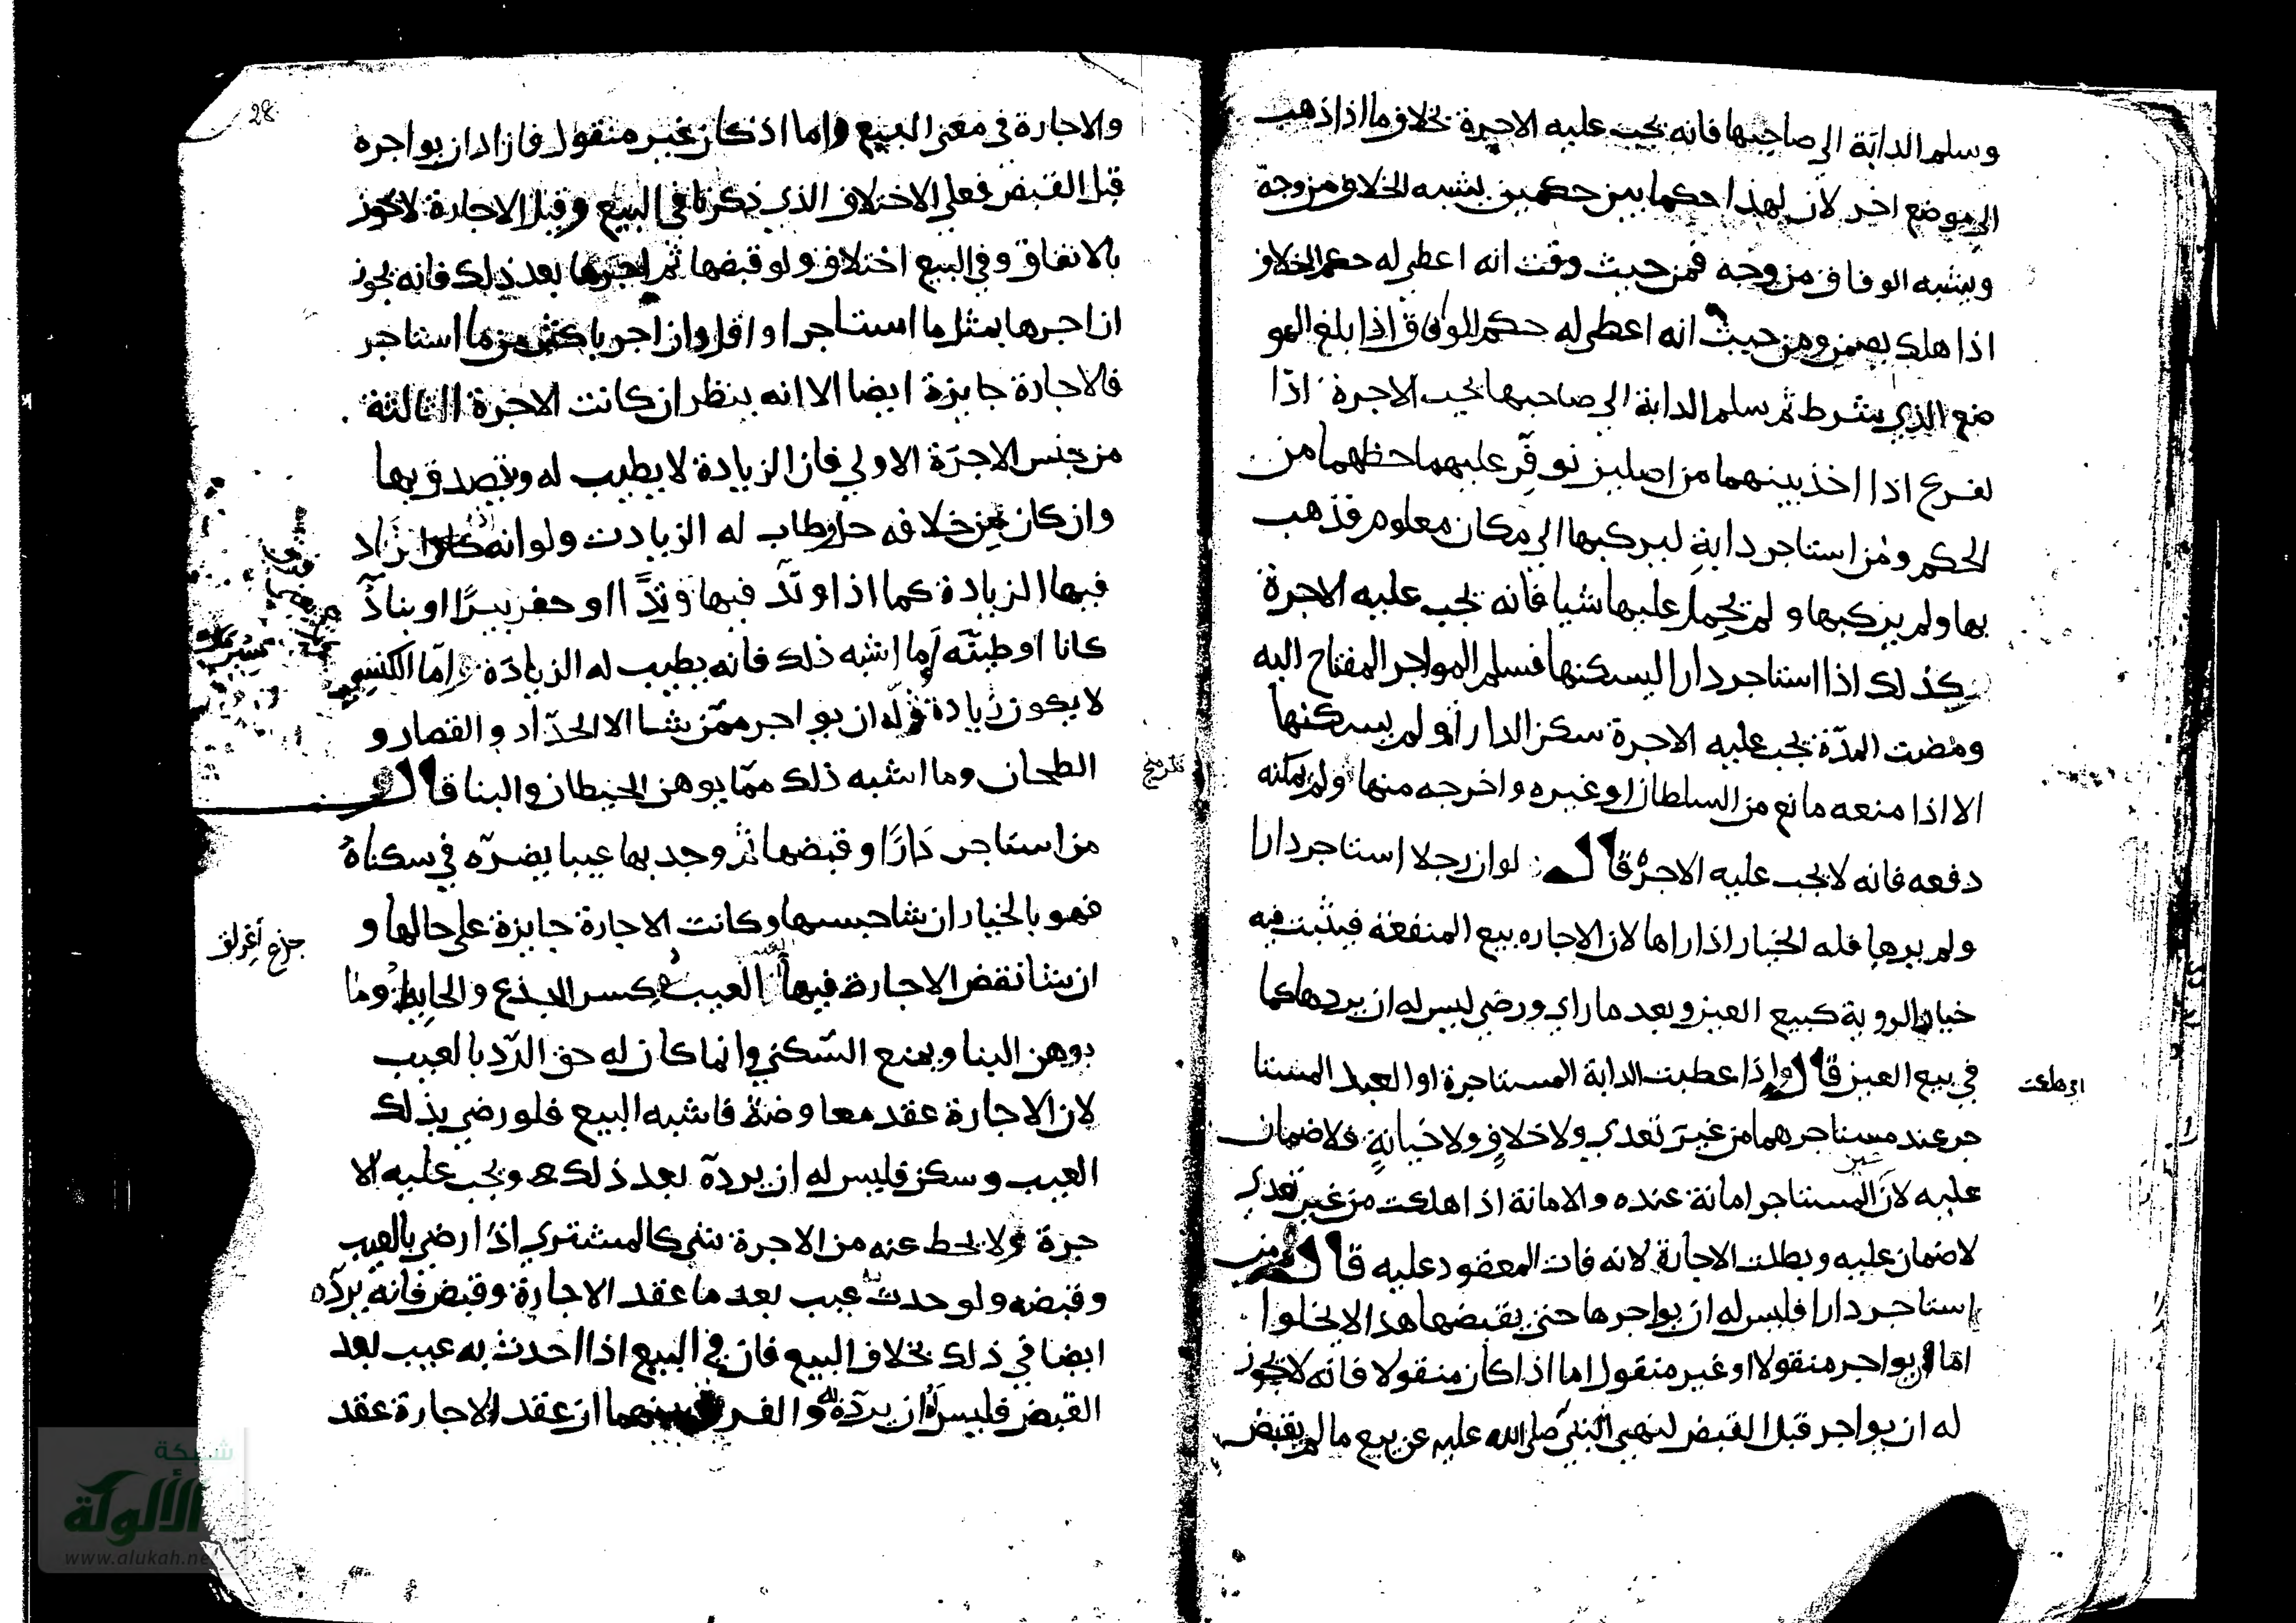 وسلم الدابة الى صاحبها فانه يجب عليه الاجرة بخلاف ما اذا ذهب
الى موضع اخر لان لهذا حكما بين حكمين يشبه الخلاف من وجه
ويشبه الوفاق من وجه فمن حيث وقت انه اعطى له حكم الخلاف
اذا هلك يضمن ومن حيث انه اعطى له حكم الوفاق اذا بلغ المو
ضع الذي يشرط ثم سلم الدابة الى صاحبها يجب الاجرة اذا
لفرع اذا اخذ بينهما من اصلين توفر عليهما حظهما من
الحكم ومن استاجر دابة ليركبها الى مكان معلوم فذهب
بها ولم يركبها ولم يحمل عليها شيا فانه يجب عليه الاجرة
وكذلك اذا استاجر دارا ليسكنها فسلم المواجر المفتاح اليه
ومضت المدة يجب عليه الاجرة سكن الدار او لم يسكنها
الا اذا منعه مانع من السلطان او غيره واخرجه منها ولم يمكنه
دفعه فانه لا يجب عليه الاجرة قال لو ان رجلا استاجر دارا
ولم يرها فله الخيار اذا راها لان الاجاره بيع المنفعة فيثبت فيه
خيار الروية كبيع العين وبعد ما راى ورضي ليس له ان يردها كما
في بيع العين قال واذا عطبت الدابة المستاجرة او العبد المستا
جر عند مستاجرهما من غير تعدي ولا خلاف ولا خيانة فلا ضمان
عليه لان المستاجر امانة عنده والامانة اذا هلكت من غير تعدي
لا ضمان عليه وبطلت الاجارة لانه فات المعقود عليه قال ومن
استاجر دارا فليس له ان يواجرها حتى يقبضها هذا لا يخلوا
اما ان يواجر منقولا او غير منقول اما اذا كان منقولا فانه لا يجوز
له ان يواجر قبل القبض لنهي النبي صلى الله عليه عن بيع ما لم يقبض
28
والاجارة في معنى البيع واما اذ كان غير منقول فان اراد ان يواجره
قبل القبض فعلى الاختلاف الذي ذكرنا في البيع وقيل الاجارة لا تجوز
بالاتفاق وفي البيع اختلاف ولو قبضها ثم اجرها بعد ذلك فانه يجوز
ان اجرها بمثل ما استاجر او اقل وان اجر باكثر من ما استاجر
فالاجارة جايزة ايضا الا انه ينظر ان كانت الاجرة الثانية
من جنس الاجرة الاولى فان الزيادة لا يطيب له ويتصدق بها
وان كان من خلافه حل وطاب له الزيادت ولو انه كان زاد
فيها الزيادة كما اذا وتد فيها وتدا او حفر بيرا او بنا
كانا او طينه وما اشبه ذلك فانه يطيب له الزيادة واما الكنس
لا يكون زيادة وله ان يواجر ممن شا الا الحداد والقصار و
الطحان وما اشبه ذلك مما يوهن الحيطان والبنا قال و
من استاجر دارا وقبضها ثم وجد بها عيبا يضره في سكناه
فهو بالخيار ان شا حبسها وكانت الاجارة جايزة على حالها و
ان شا نقض الاجارة فيها العيب ككسر الجذع والحايط وما
يوهن البنا ويمنع السكنى وانما كان له حق الرد بالعيب
لان الاجارة عقد معاوضة فاشبه البيع فلو رضي بذلك
العيب وسكن فليس له ان يرده بعد ذلك ويجب عليه الا
جرة ولا يحط عنه من الاجرة شي كالمشتري اذا رضي بالعيب
وقبضه ولو حدث عيب بعد ما عقد الاجارة وقبض فانه يرده
ايضا في ذلك بخلاف البيع فان في البيع اذا احدث به عيب بعد
القبض فليس له ان يرده والفرق بينهما ان عقد الاجارة عقد
شبكة
الألوكة
www.alukah.ne